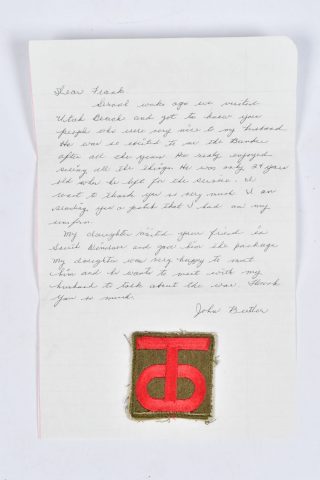 Dear Frank
Several weeks ago we visited
Utah Beach and got to know your
people who were very nice to my husband
He was so excited to see the Bunker
after all the years He really enjoyed
seeing all the things. He was only 24 years
old when he left for the service. I
want to thank you so very much I am
sending you a patch that I had on my
uniform.
My daughter visited your friend in
and gave him the package
My daughter was very happy to meet
him and he wants to meet with my
husband to talk about the war. Thank
you so much.
John Butler
TO